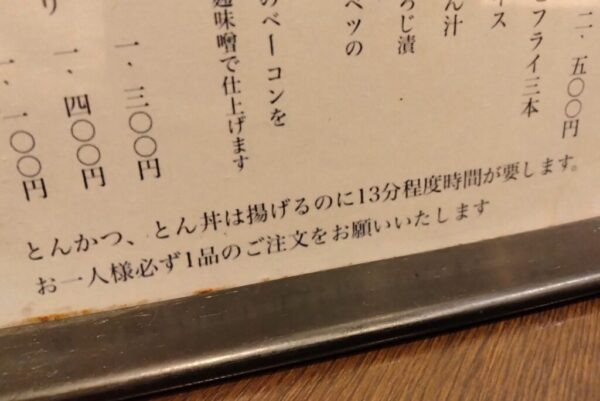 二、五〇〇円
フライ三本
ス
ん汁
ろじ漬
ベツの
のベーコンを
麹味噌で仕上げます
一、三〇〇円
一、四〇〇円
り
一、一〇〇円
とんかつ、とん丼は揚げるのに13分程度時間が要します。
お一人様必ず1品のご注文をお願いいたします